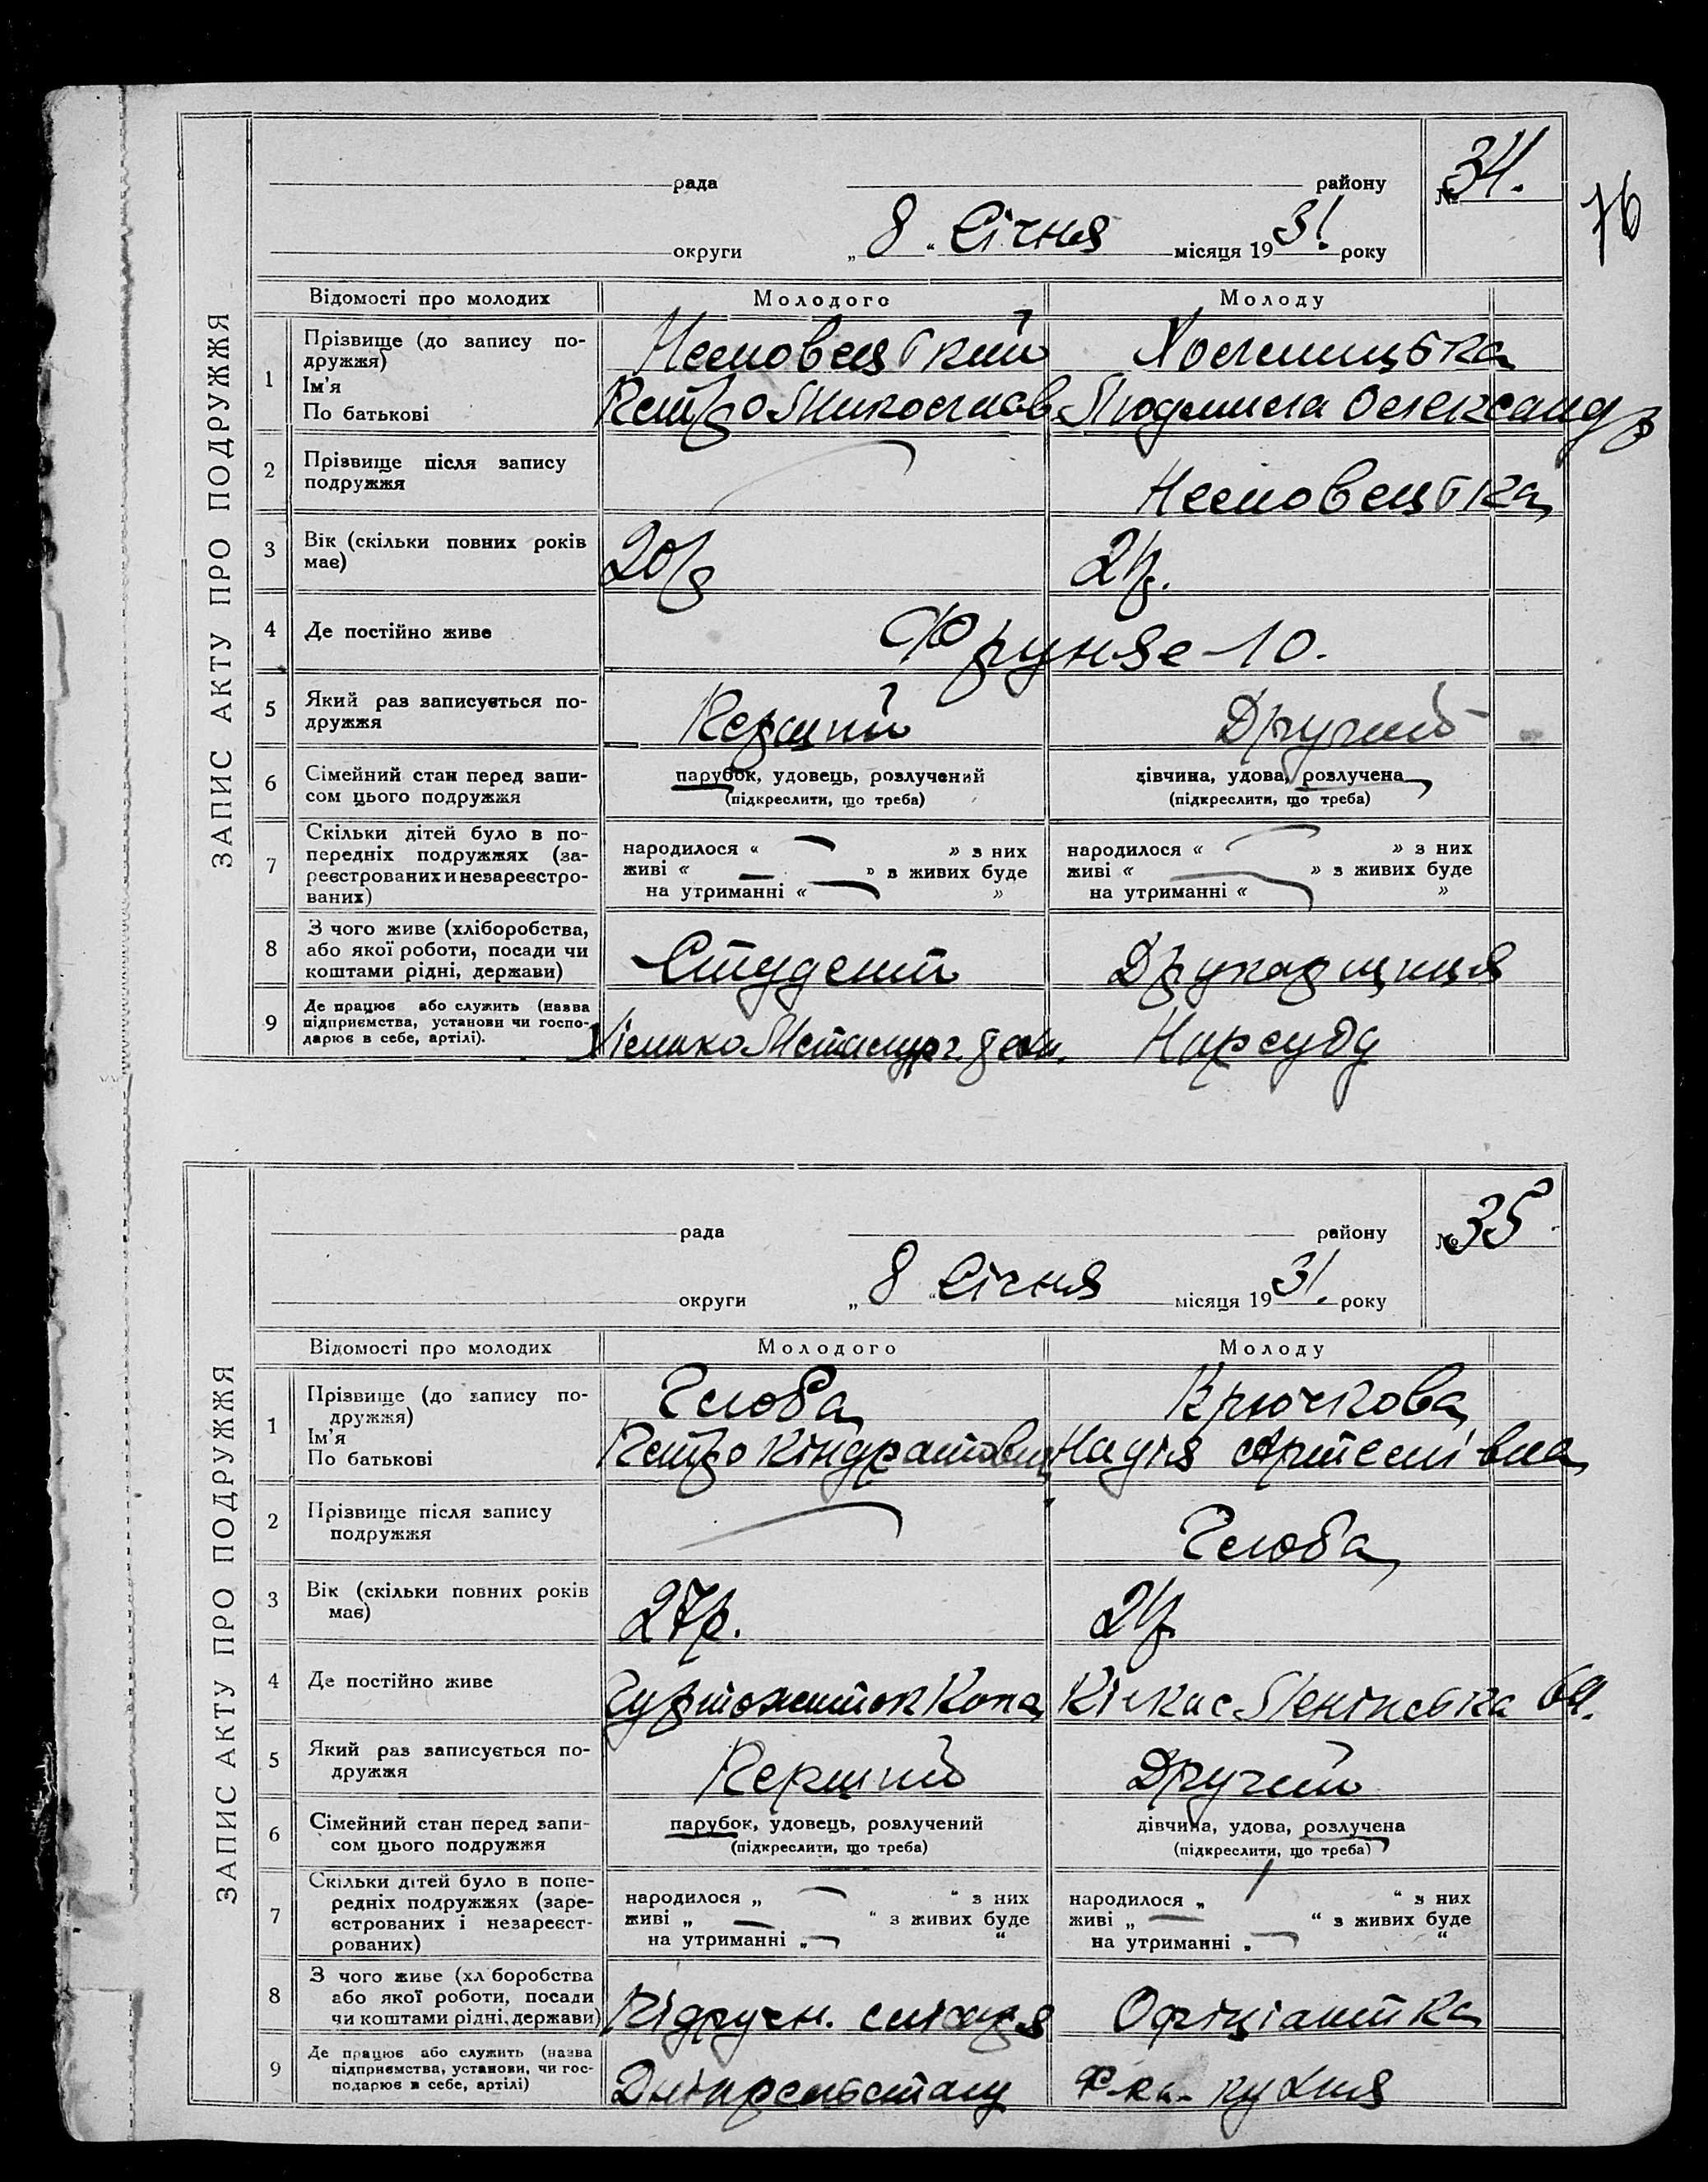 ЗАПИС АКТУ ПРО ПОДРУЖЖЯ
рада району № 34.
76
округи „ 8 “ Січня місяця 1931. року
Відомості про молодих Молодого Молоду
1 Прізвище (до запису по-
дружжя)
Ім'я
По батькові
Петро Миколаєв Людмила Олександр
2 Прізвище після запису
подружжя
3 Вік (скільки повних років
має)
20 р 21 р.
4 Де постійно живе
Фрунзе - 10.
5 Який раз записується по-
дружжя
Перший Другий
6 Сімейний стан перед запи-
сом цього подружжя
парубок, удовець, розлучений дівчина, удова, розлучена
(підкреслити, що треба) (підкреслити, що треба)
7 Скільки дітей було в по-
передніх подружжях (за-
реєстрованих и незареєстро-
ваних)
народилося « » з них народилося « » з них
живі « » з живих буде живі « » з живих буде
на утриманні « » на утриманні « »
8 З чого живе (хліборобства,
або якої роботи, посади чи
коштами рідні, держави)
Студент Друкарщиця
9 Де працює або служить (назва
підприємства, установи чи госпо-
дарює в себе, артілі).
Нарсуд
ЗАПИС АКТУ ПРО ПОДРУЖЖЯ
рада району № 35
округи „ 8 “ Січня місяця 1931. року
Відомості про молодих Молодого Молоду
1 Прізвище (до запису по-
дружжя)
Ім'я
По батькові
Глоба Крючкова
Петро Кіндратович Надія Артемівна
2 Прізвище після запису
подружжя
Глоба
3 Вік (скільки повних років
має)
27 р. 21 р
4 Де постійно живе
Гуртожиток Ленінська
5 Який раз записується по-
дружжя
Перший Другий
6 Сімейний стан перед запи-
сом цього подружжя
парубок, удовець, розлучений дівчина, удова, розлучена
(підкреслити, що треба) (підкреслити, що треба)
7 Скільки дітей було в попе-
редніх подружжях (заре-
єстрованих і незареєст-
рованих)
народилося „ “ з них народилося „ “ з них
живі „ “ з живих буде живі „ “ з живих буде
на утриманні „ “ на утриманні „ “
8 З чого живе (хл боробства
або якої роботи, посади
чи коштами рідні, держави)
Підручн. слюсаря Офіціантка
9 Де працює або служить (назва
підприємства, установи, чи гос-
подарює в себе, артілі)
Дніпрельстану Ф-ка- кухня